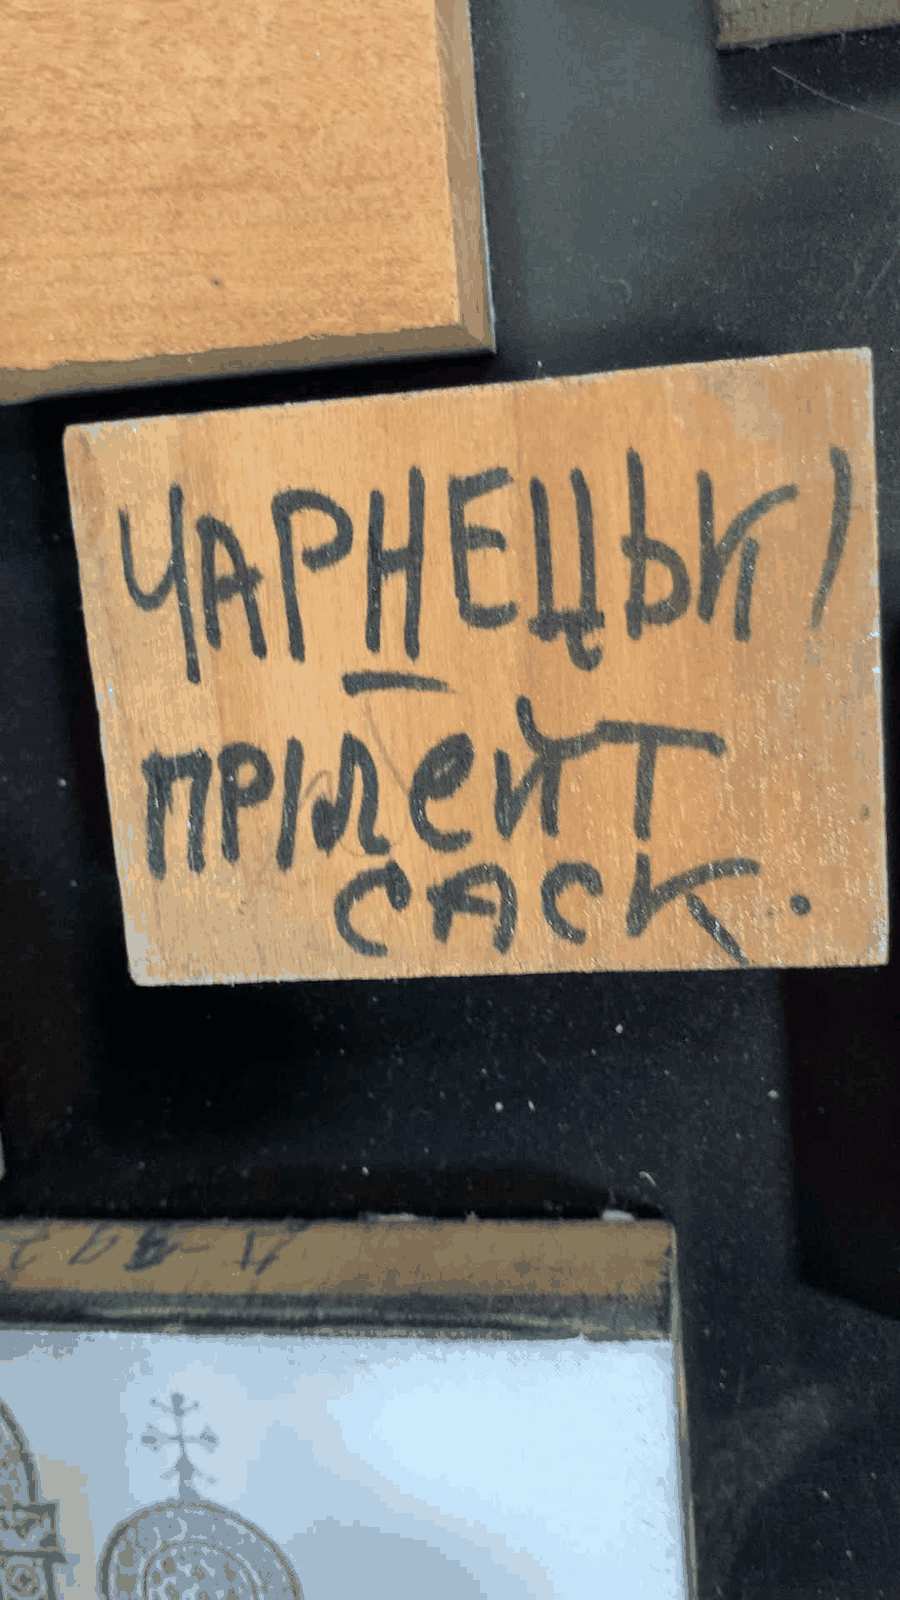 ЧАРНЕЦЬКІ
ПРІЛЕЙТ
САСК.